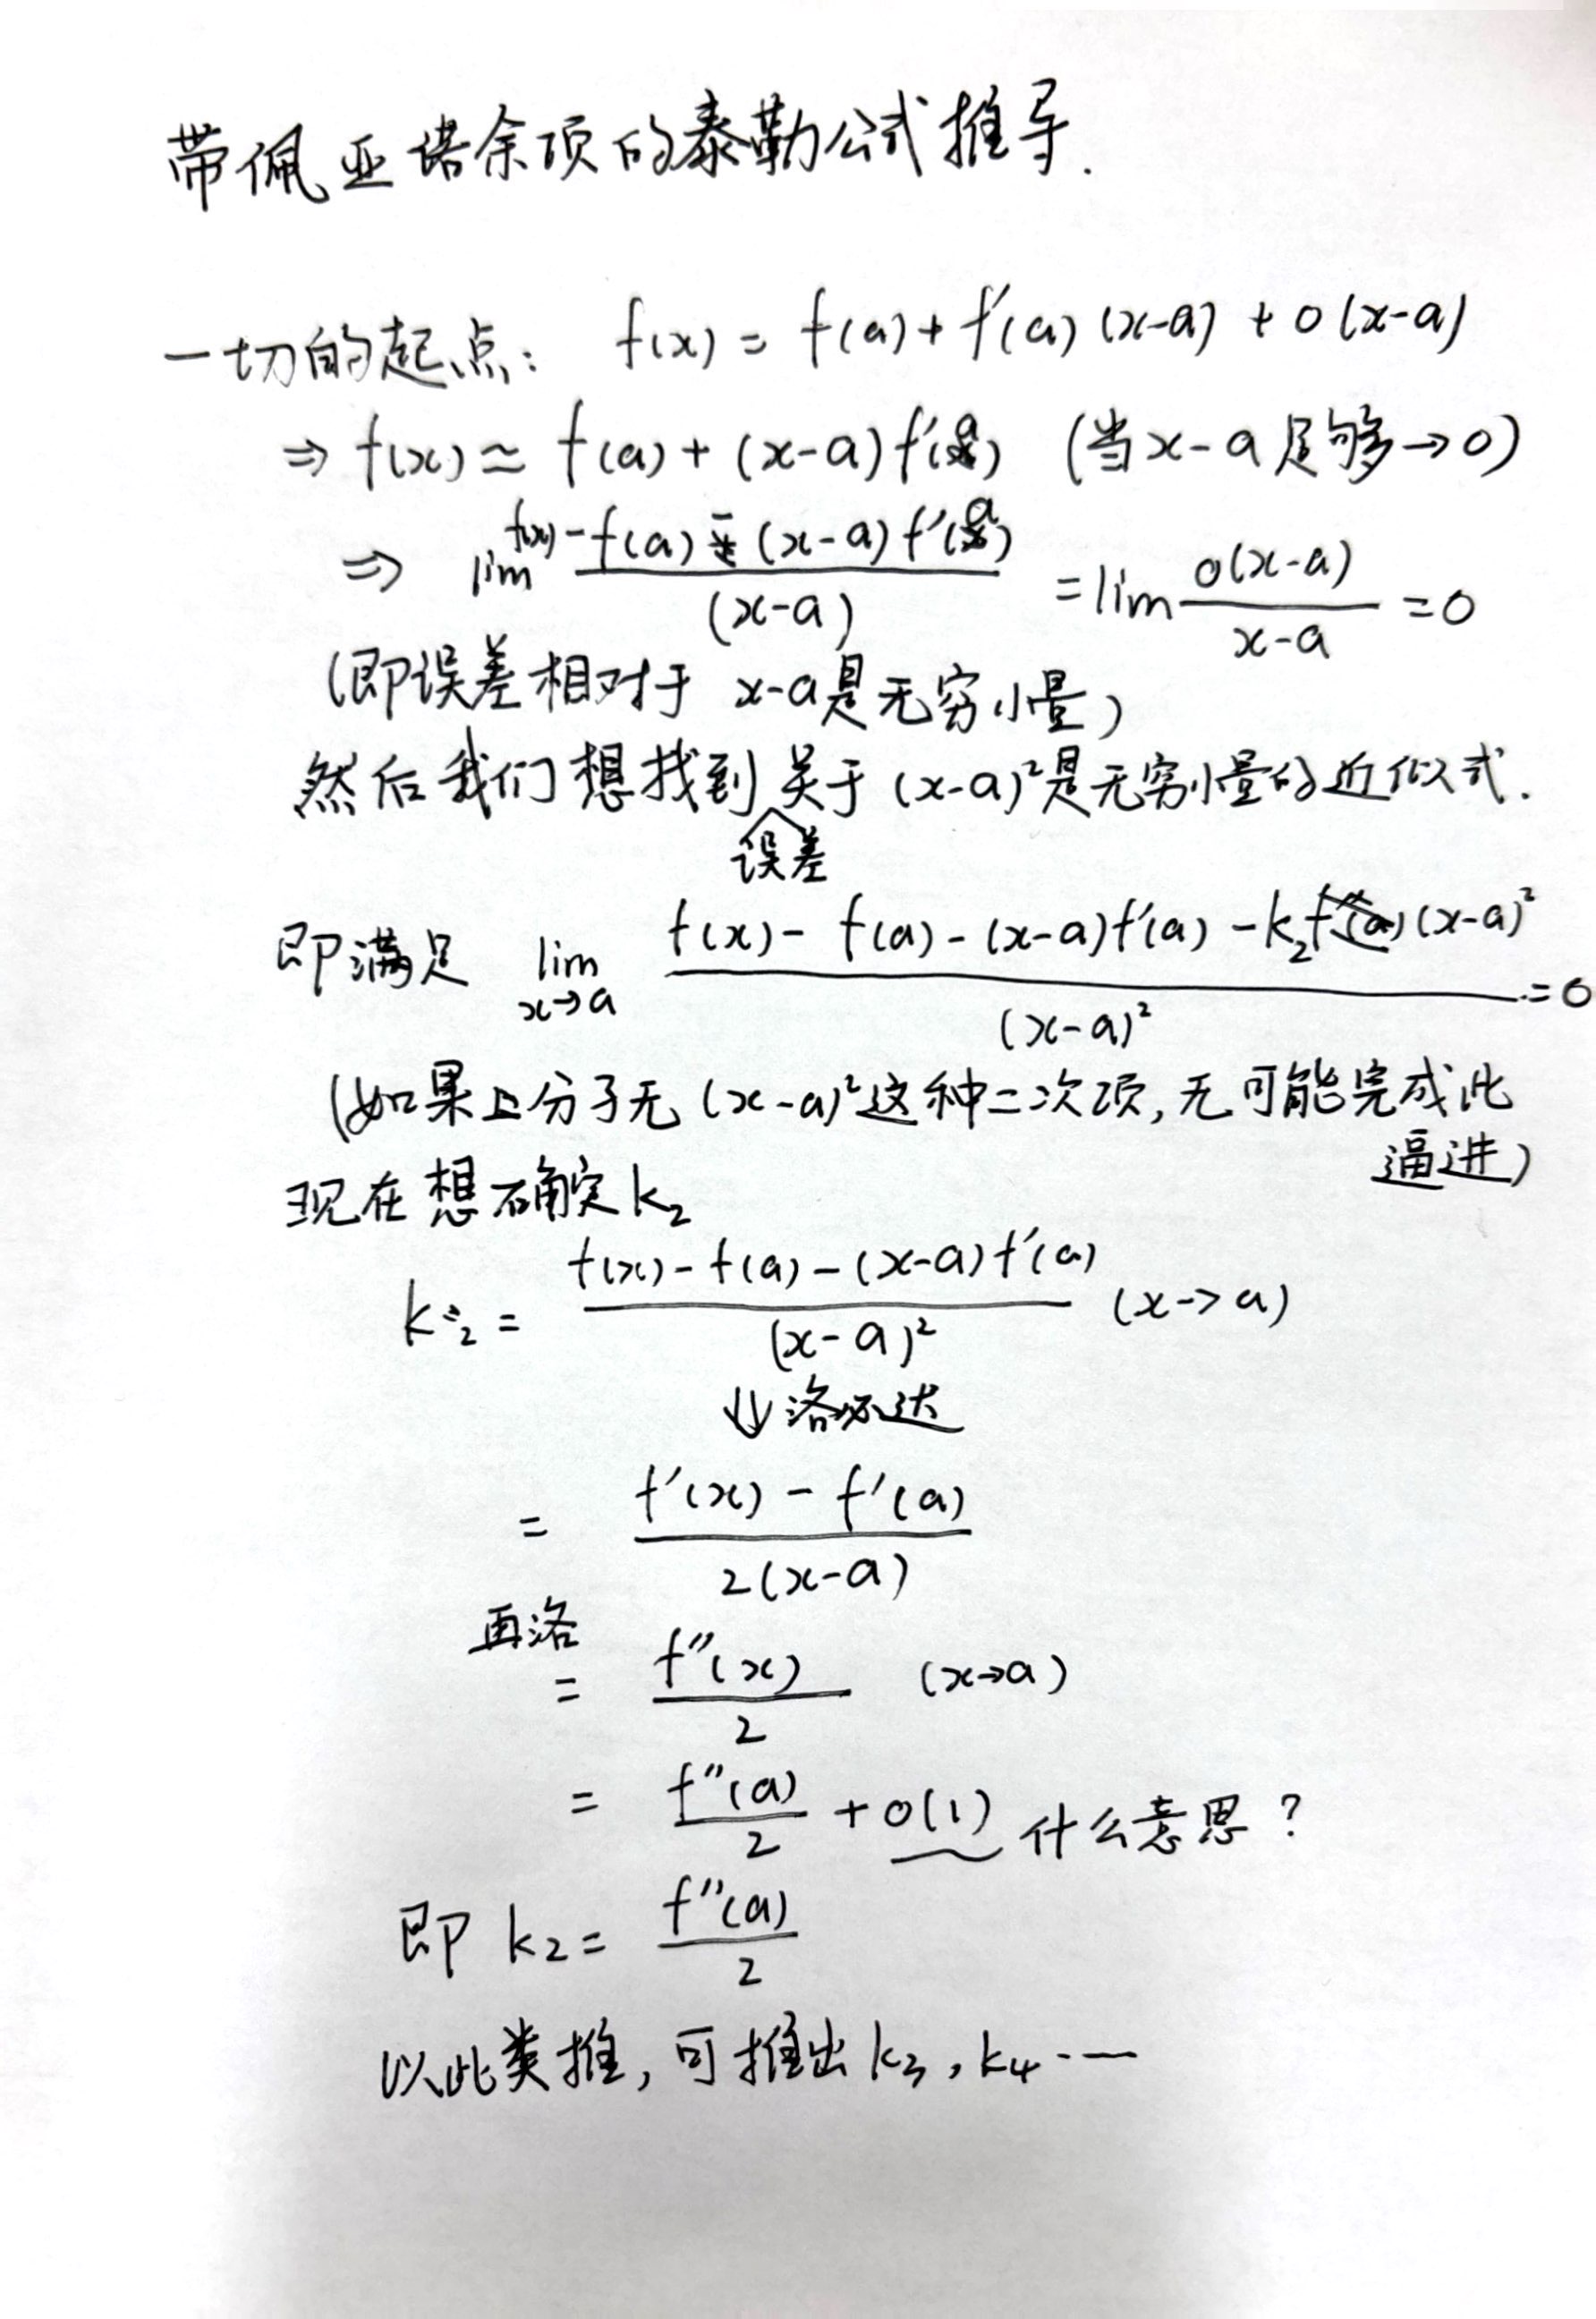 带佩亚诺余项的泰勒公式推导.
一切的起点: f(x) = f(a) + f'(a) (x-a) + o(x-a)
⇒ f(x) ≃ f(a) + (x-a) f'(a) (当 x-a 足够→0)
⇒ lim (f(x) - f(a) - (x-a) f'(a)) / (x-a) = lim o(x-a) / (x-a) = 0
(即误差相对于 x-a是无穷小量)
然后我们想找到误差关于 (x-a)²是无穷小量的近似式.
即满足 lim x→a (f(x) - f(a) - (x-a)f'(a) - k₂(x-a)²) / (x-a)² = 0
(如果上分子无 (x-a)²这种二次项, 无可能完成此
逼进)
现在想确定 k₂
k₂ = (f(x) - f(a) - (x-a)f'(a)) / (x-a)² (x→a)
⇓ 洛必达
= (f'(x) - f'(a)) / 2(x-a)
再洛
= f''(x) / 2 (x→a)
= f''(a) / 2 + o(1) 什么意思?
即 k₂ = f''(a) / 2
以此类推, 可推出 k₃, k₄ ·一